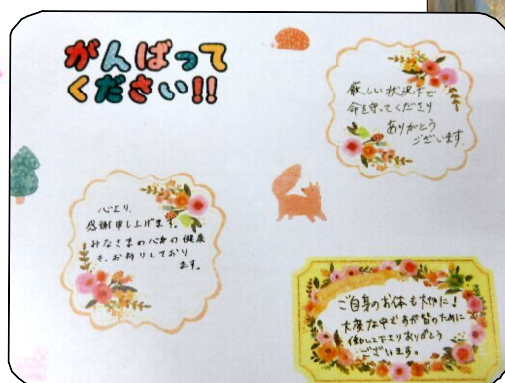 がんばって
ください!!
厳しい状況下で
命を守ってくださり
ありがとう
ございます。
心より、
感謝申し上げます。
みなさまの心身の健康
を、お祈りしており
ます。
ご自身のお体も大切に!
大変な中ですが皆のために
働いて下さりありがとう
ございます。